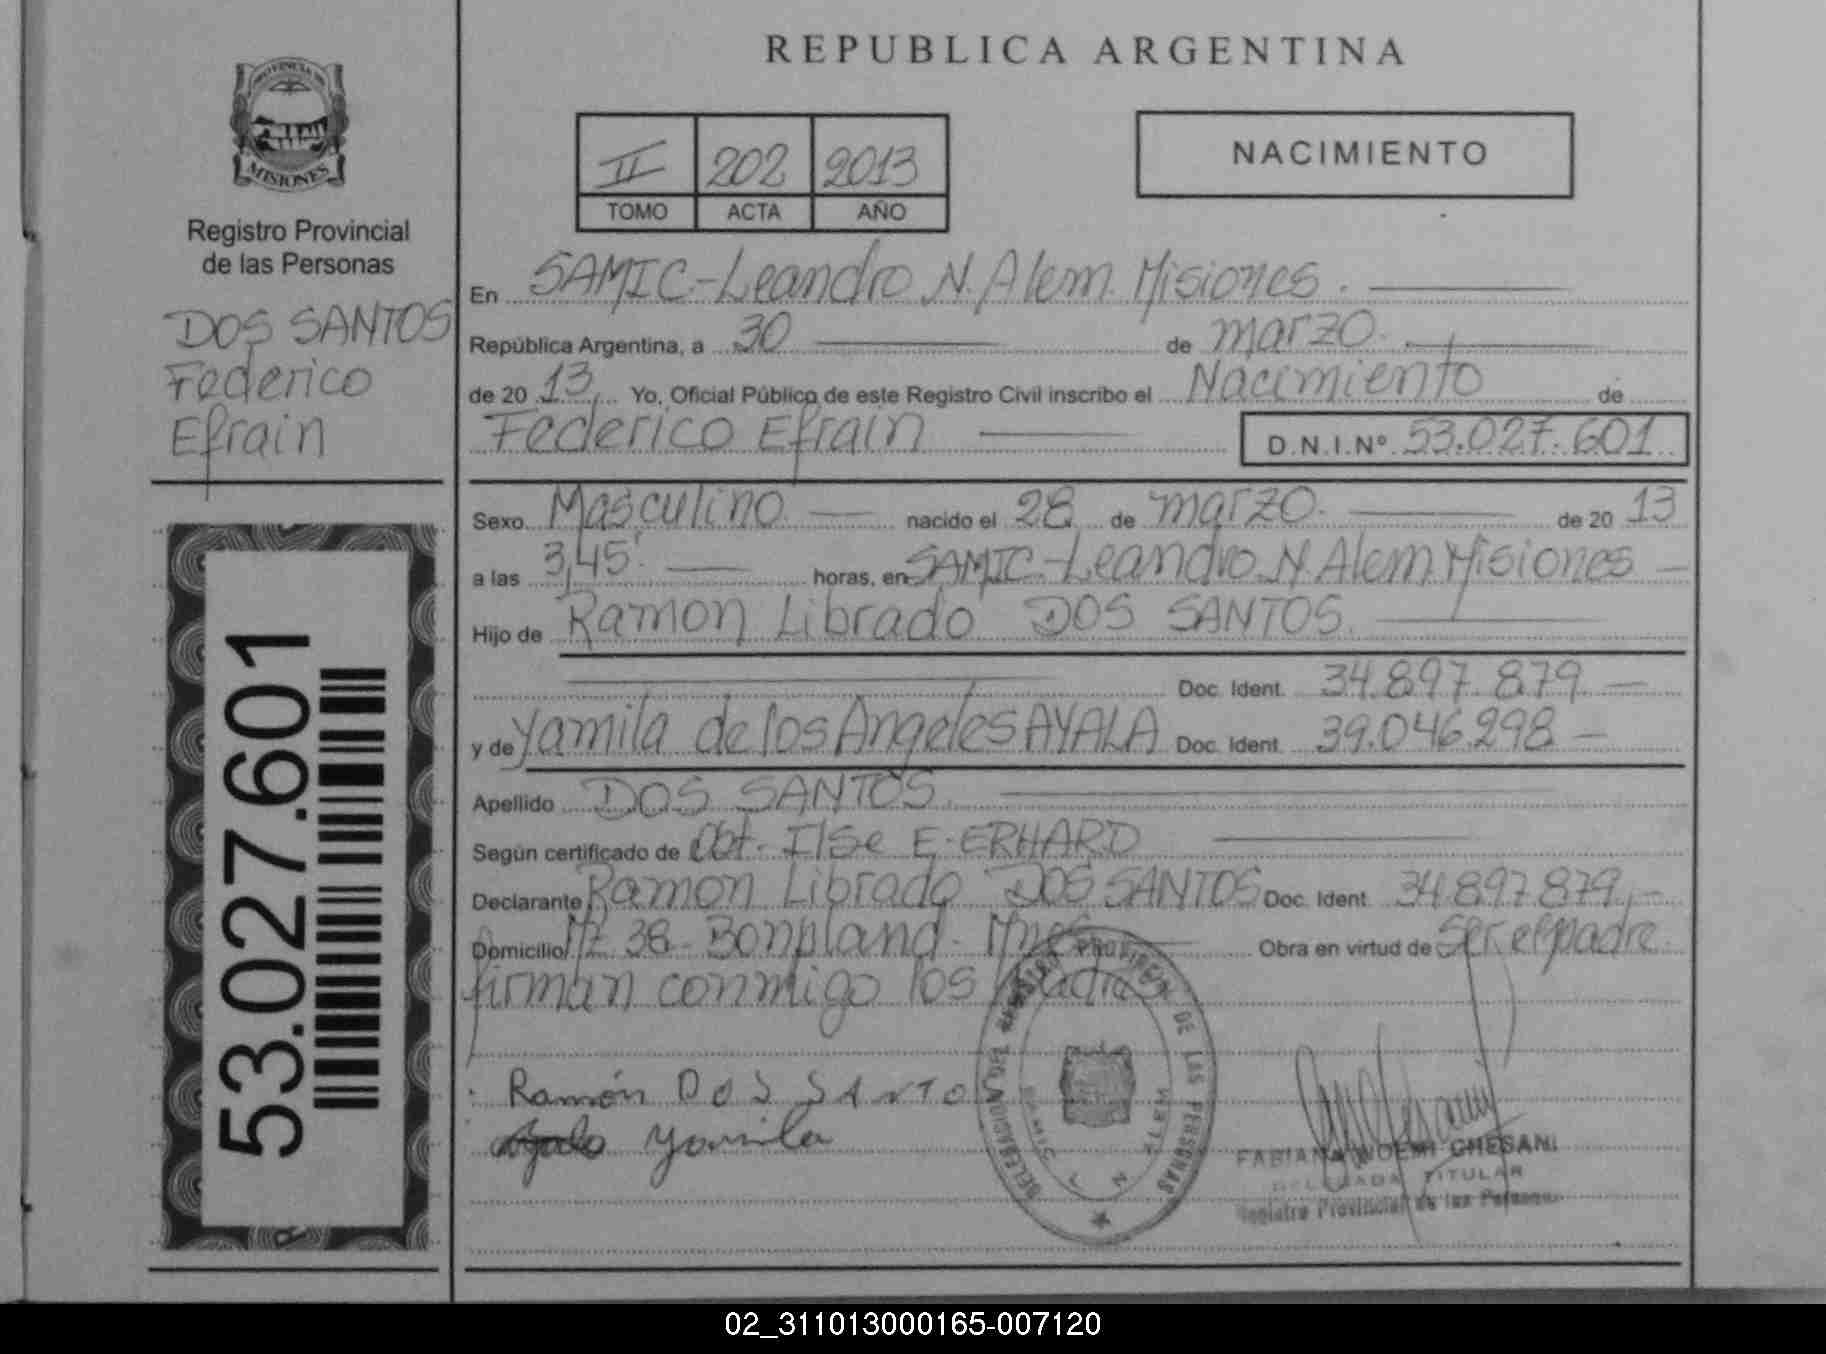 REPUBLICA ARGENTINA
PROVINCIA DE
MISIONES
Registro Provincial
de las Personas
DOS SANTOS
Federico
Efrain
53.027.601
II 202 2013
TOMO ACTA AÑO
NACIMIENTO
En SAMIC-Leandro N. Alem. Misiones.
República Argentina, a 30 de marzo.
de 20 13 Yo, Oficial Público de este Registro Civil inscribo el Nacimiento de
Federico Efrain D.N.I.Nº 53.027.601
Sexo Masculino nacido el 28 de marzo. de 20 13
a las 3,45' horas, en SAMIC-Leandro N. Alem Misiones
Hijo de Ramon Librado DOS SANTOS.
Doc. Ident. 34.897.879
y de Yamila de los Angeles AYALA Doc. Ident. 39.046.298
Apellido DOS SANTOS
Según certificado de Obt. Ilse E. ERHARD
Declarante Ramon Librado DOS SANTOS Doc. Ident. 34.897.879
Domicilio Mz 38 - Bonpland - Mnes Obra en virtud de ser el padre
firman conmigo los padres
Ramón DOS SANTO
Yamila
DELEGACION REGISTRO PROVINCIAL DE LAS PERSONAS
SAMIC L N ALEM
FABIANA NOEMI CHESANI
DELEGADA TITULAR
Registro Provincial de las Personas
02_311013000165-007120